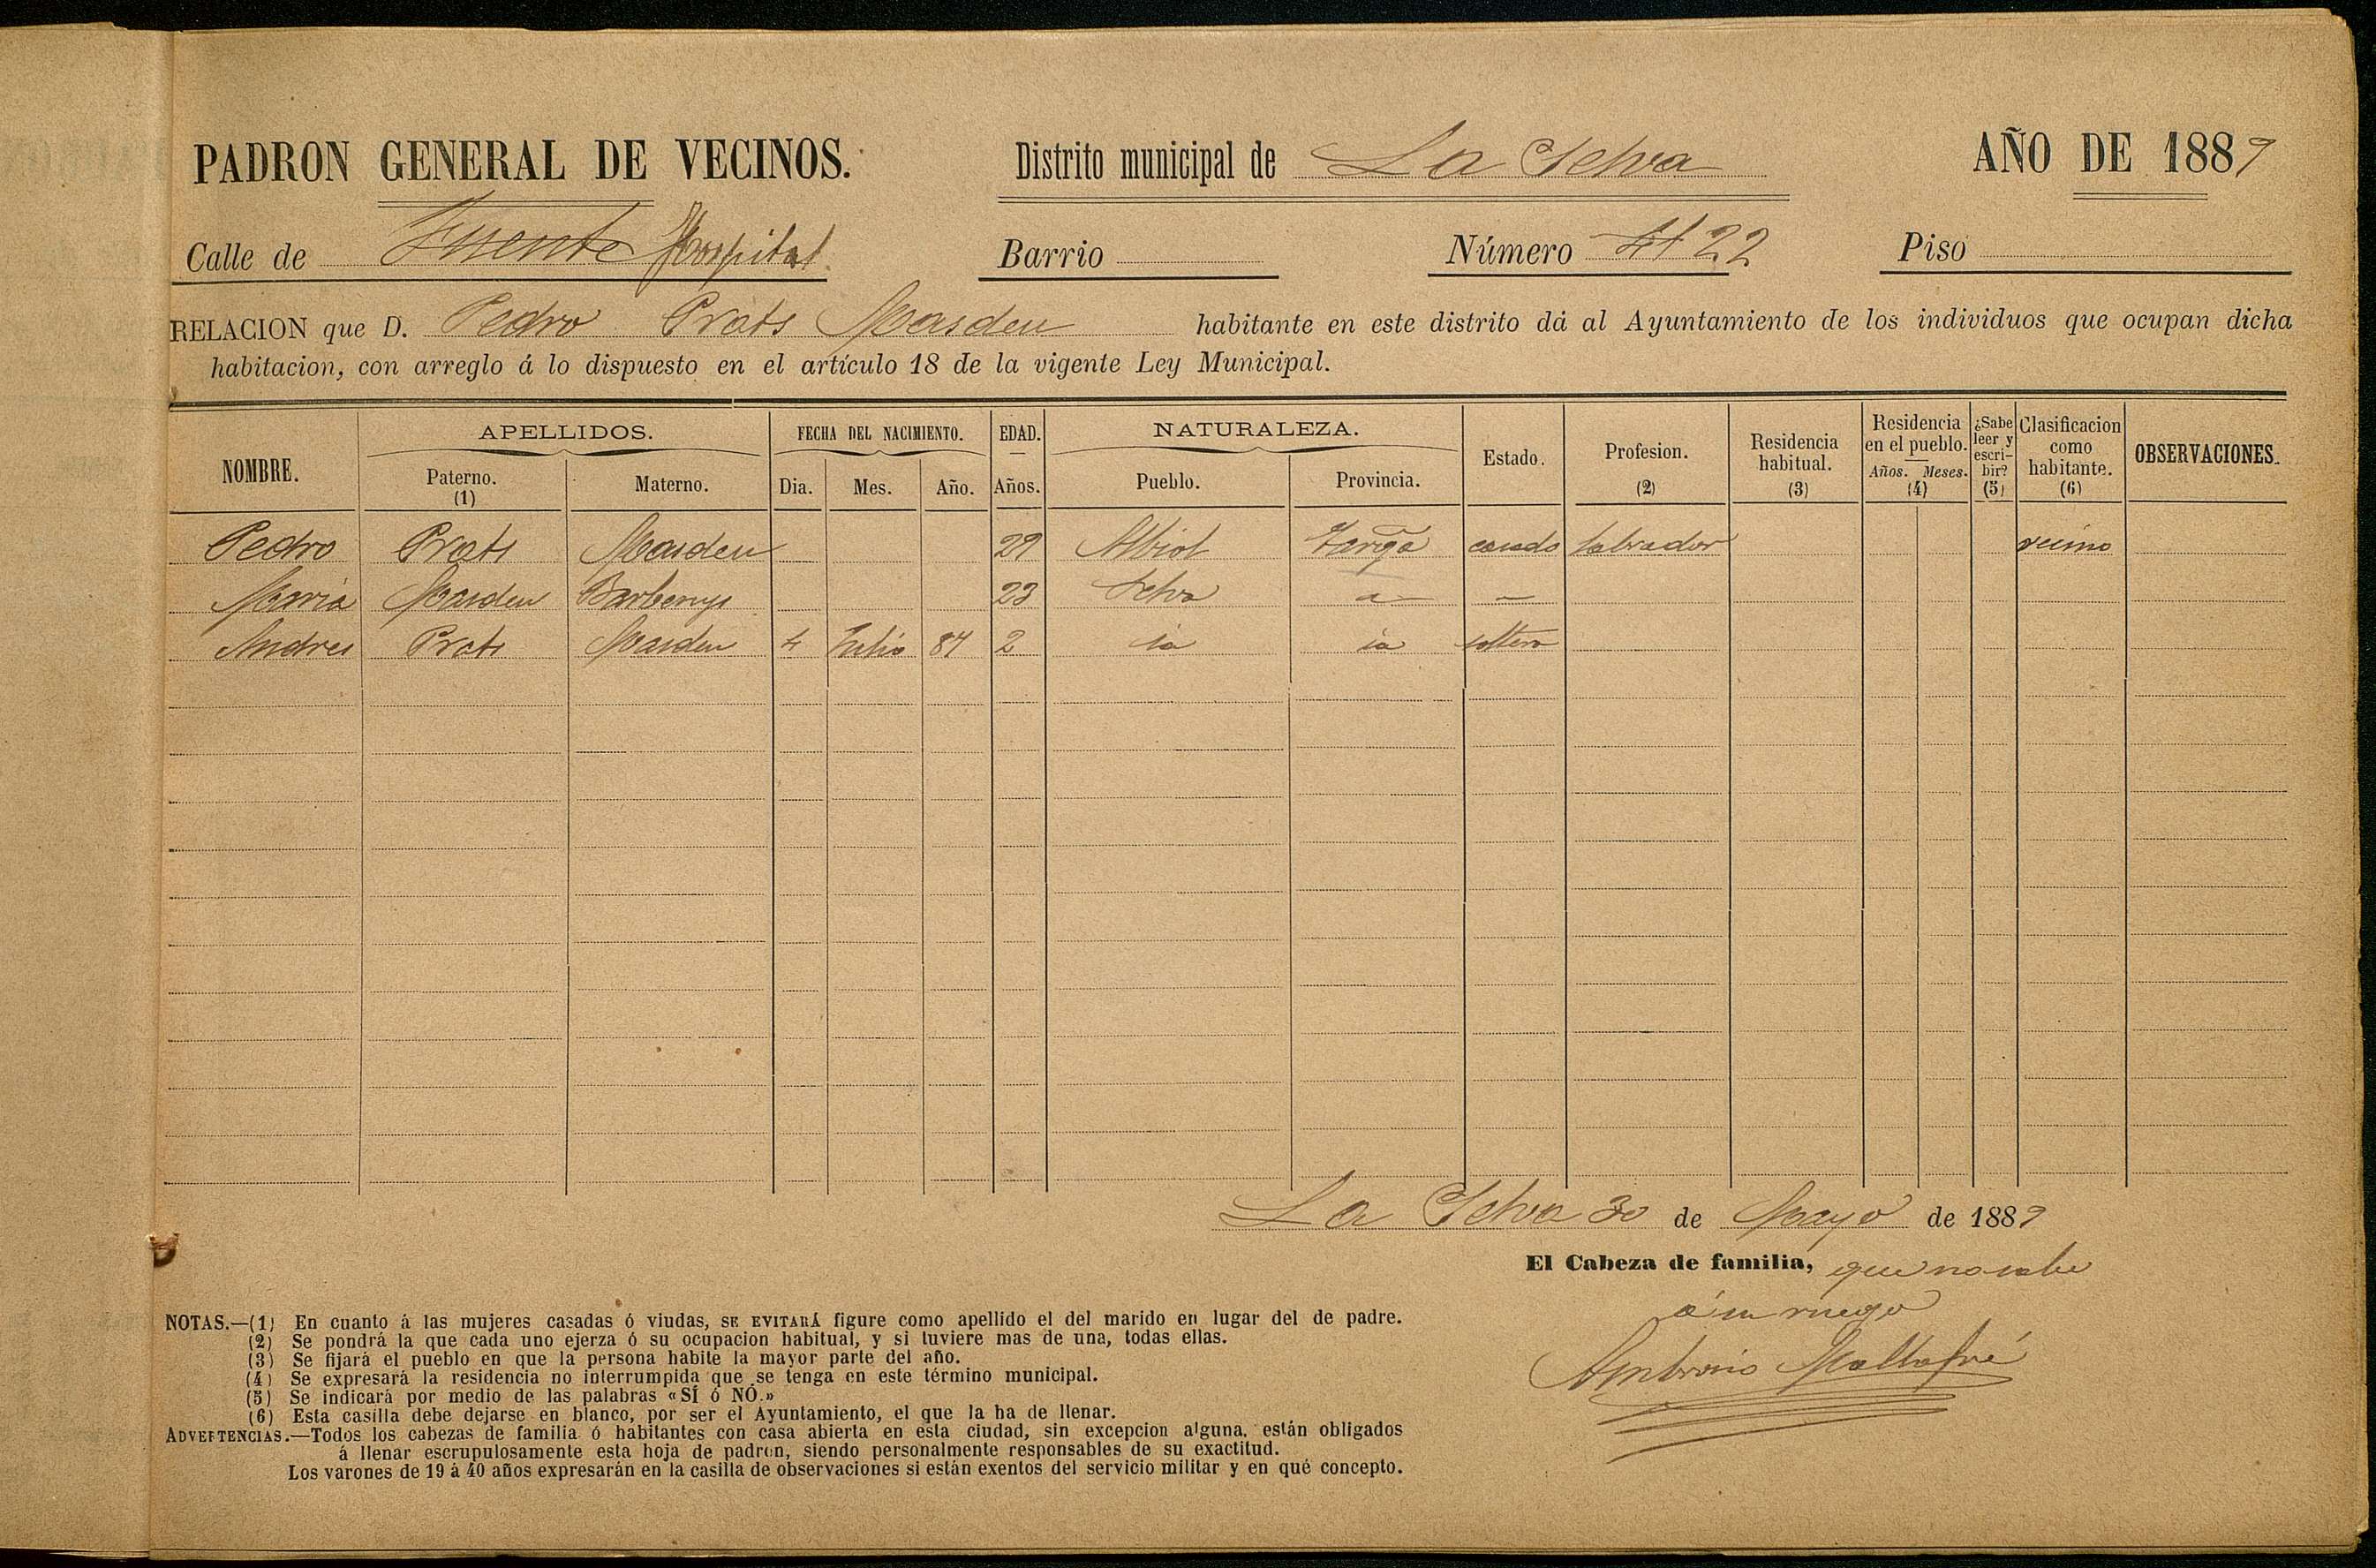 PADRON GENERAL DE VECINOS. Distrito municipal de La Selva AÑO DE 1889
Calle de Fuente Hospital Barrio Número 22 Piso
RELACION que D. Pedro Prats Masdeu habitante en este distrito dá al Ayuntamiento de los individuos que ocupan dicha
habitacion, con arreglo á lo dispuesto en el artículo 18 de la vigente Ley Municipal.
NOMBRE. APELLIDOS. Paterno. (1) Materno. FECHA DEL NACIMIENTO. Dia. Mes. Año. EDAD. — Años. NATURALEZA. Pueblo. Provincia. Estado. Profesion. (2) Residencia habitual. (3) Residencia en el pueblo. Años. Meses. (4) ¿Sabe leer y escribir? (5) Clasificacion como habitante. (6) OBSERVACIONES.
Pedro Prats Masdeu 29 Albiol Tarrgª casado labrador vecino
Maria Masdeu Barbenys 23 Selva a — —
Andres Prats Masdeu 4 Julio 87 2 ia ia soltero
La Selva 30 de Mayo de 1889
El Cabeza de familia, que no sabe
á su ruego
Ambrosio Mallafré
NOTAS.—(1) En cuanto á las mujeres casadas ó viudas, SE EVITARÁ figure como apellido el del marido en lugar del de padre.
(2) Se pondrá la que cada uno ejerza ó su ocupacion habitual, y si tuviere mas de una, todas ellas.
(3) Se fijará el pueblo en que la persona habite la mayor parte del año.
(4) Se expresará la residencia no interrumpida que se tenga en este término municipal.
(5) Se indicará por medio de las palabras «SÍ ó NÓ.»
(6) Esta casilla debe dejarse en blanco, por ser el Ayuntamiento, el que la ha de llenar.
ADVERTENCIAS.—Todos los cabezas de familia ó habitantes con casa abierta en esta ciudad, sin excepcion alguna, están obligados
á llenar escrupulosamente esta hoja de padron, siendo personalmente responsables de su exactitud.
Los varones de 19 á 40 años expresarán en la casilla de observaciones si están exentos del servicio militar y en qué concepto.